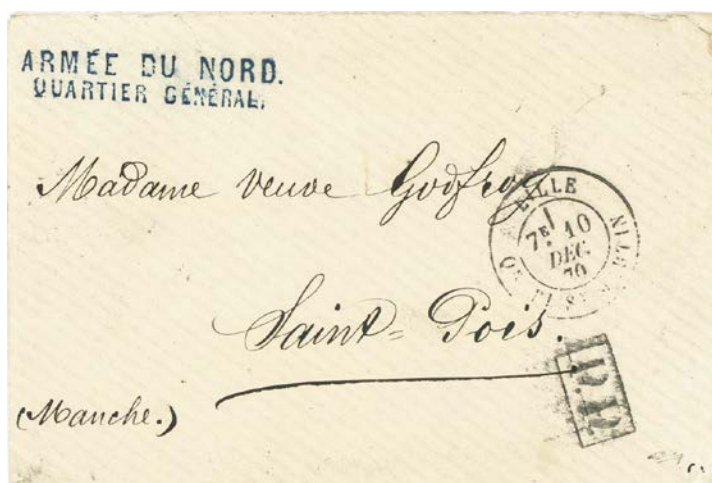 ARMÉE DU NORD.
QUARTIER GÉNÉRAL.
Madame veuve Godfroy
LILLE
7E/ 10
DEC.
70
Saint=Pois.
P.P.
(Manche.)